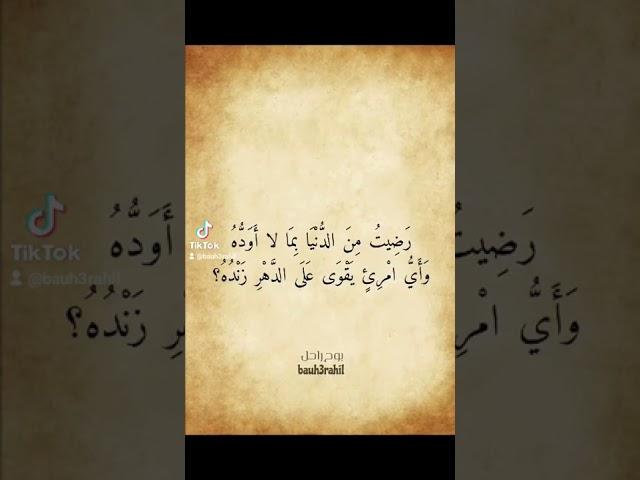 TikTok
@bauh3rahil
رَضِيتُ مِنَ الدُّنْيَا بِمَا لا أَوَدُّهُ
وَأَيُّ امْرِئٍ يَقْوَى عَلَى الدَّهْرِ زَنْدُهُ؟
بوح راحل
bauh3rahil
TikTok
@bauh3rahil